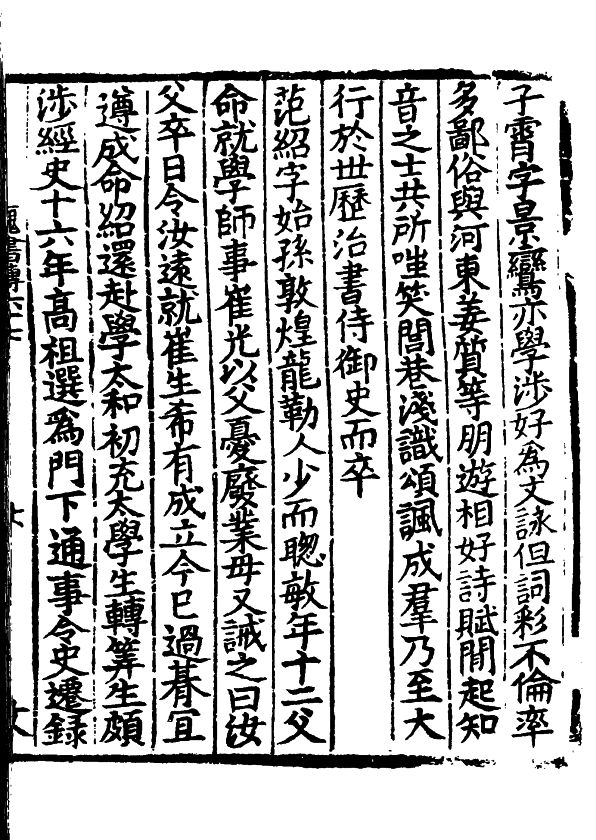 子霄字景鸞亦學涉好為文詠但詞彩不倫率
多鄙俗與河東姜質等朋遊相好詩賦間起知
音之士共所嗤笑閭巷淺識頌諷成羣乃至大
行於世歷治書侍御史而卒
范紹字始孫敦煌龍勒人少而聰敏年十二父
命就學師事崔光以父憂廢業母又誡之曰汝
父卒日令汝遠就崔生希有成立今已過朞宜
遵成命紹還赴學太和初充太學生轉筭生頗
涉經史十六年高祖選爲門下通事令史遷錄